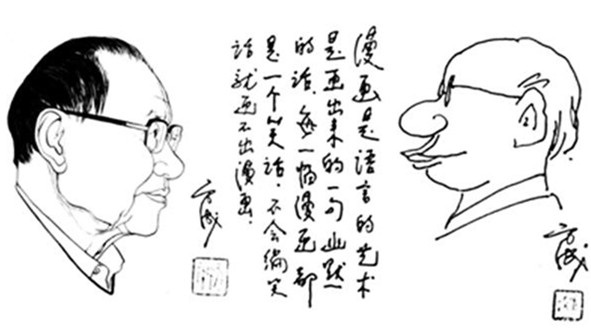 漫画是语言的艺术
是画出来的一句幽默
的话，每一幅漫画都
是一个笑话，不会编笑
话就画不出漫画。
方成
方成